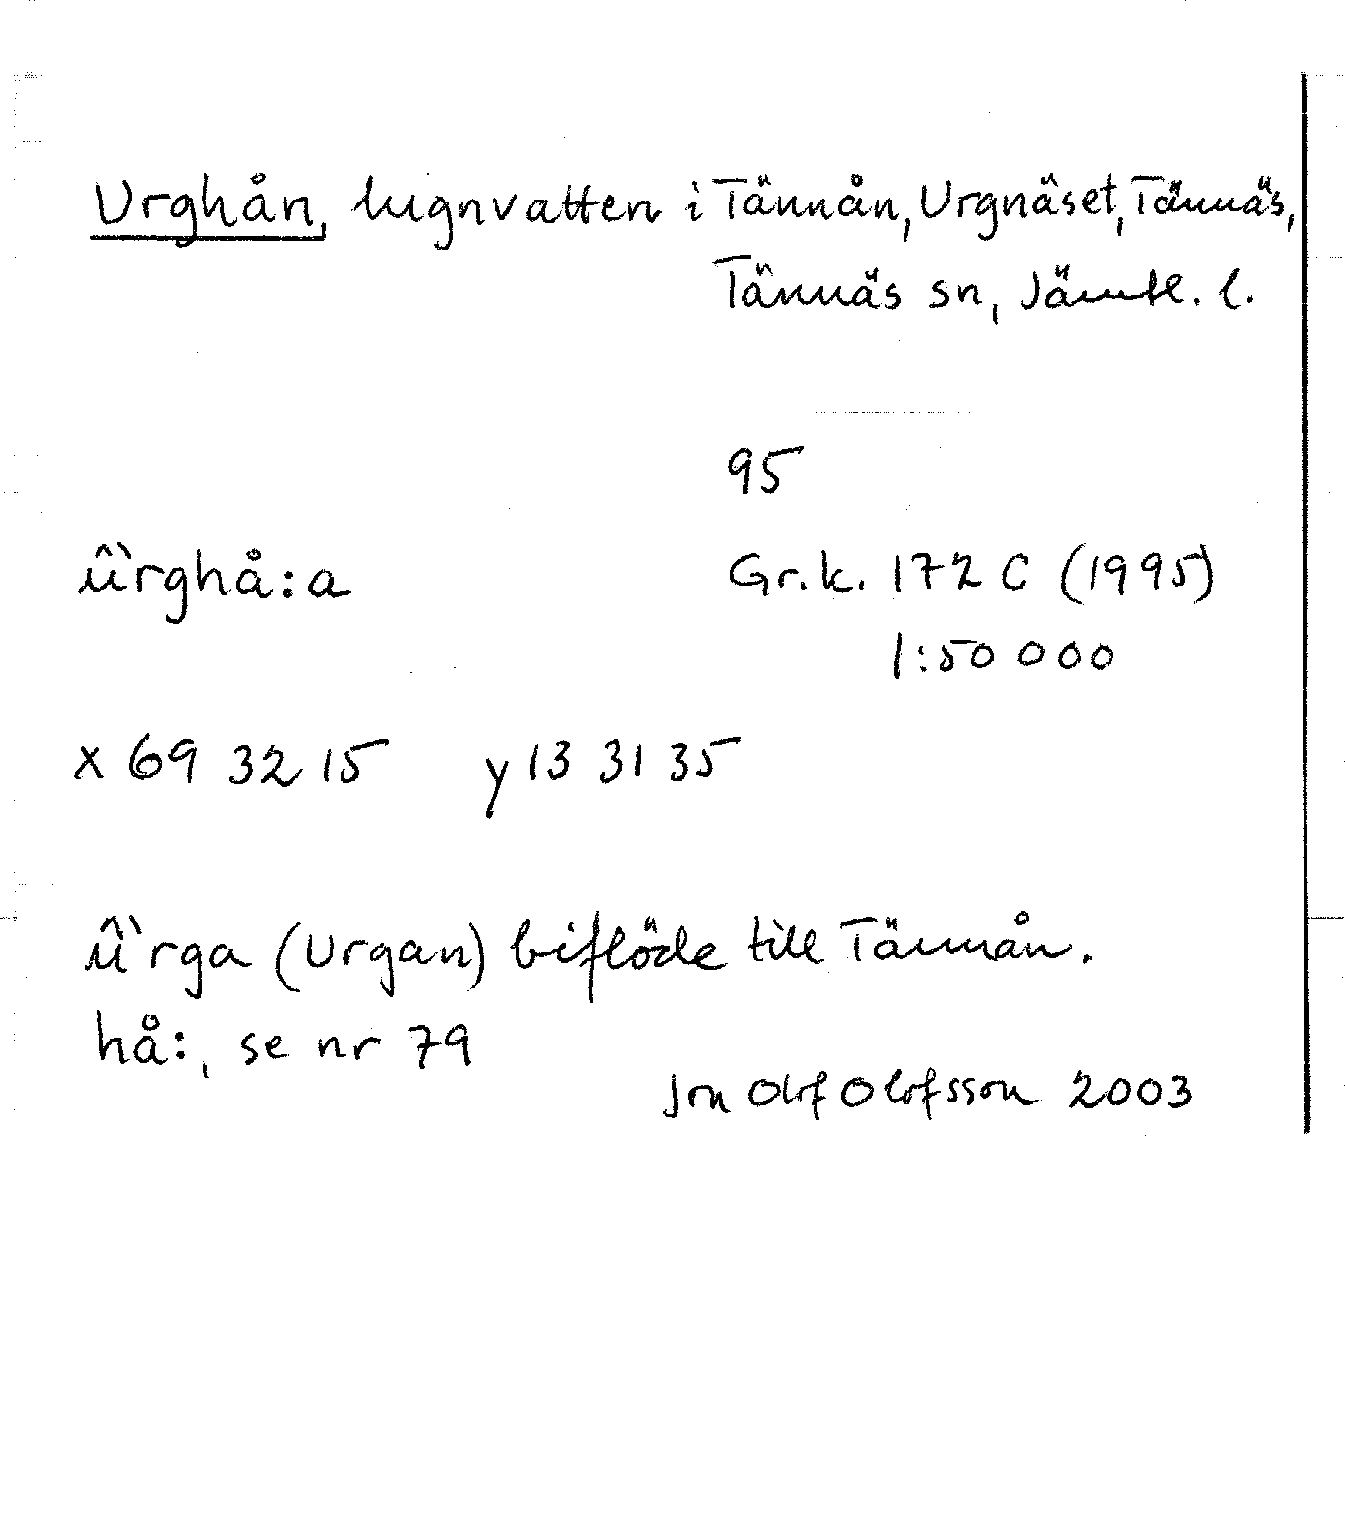 Urghån, lugnvatten i Tännån, Urgnäset, Tännäs,
Tännäs sn, Jämtl. l.
95
û̀rghå:a
Gr.k. 172 C (1995)
1:50 000
x 69 32 15 y 13 31 35
û̀rga (Urgan) biflöde till Tännån.
hå:, se nr 79
Jon Olof Olofsson 2003